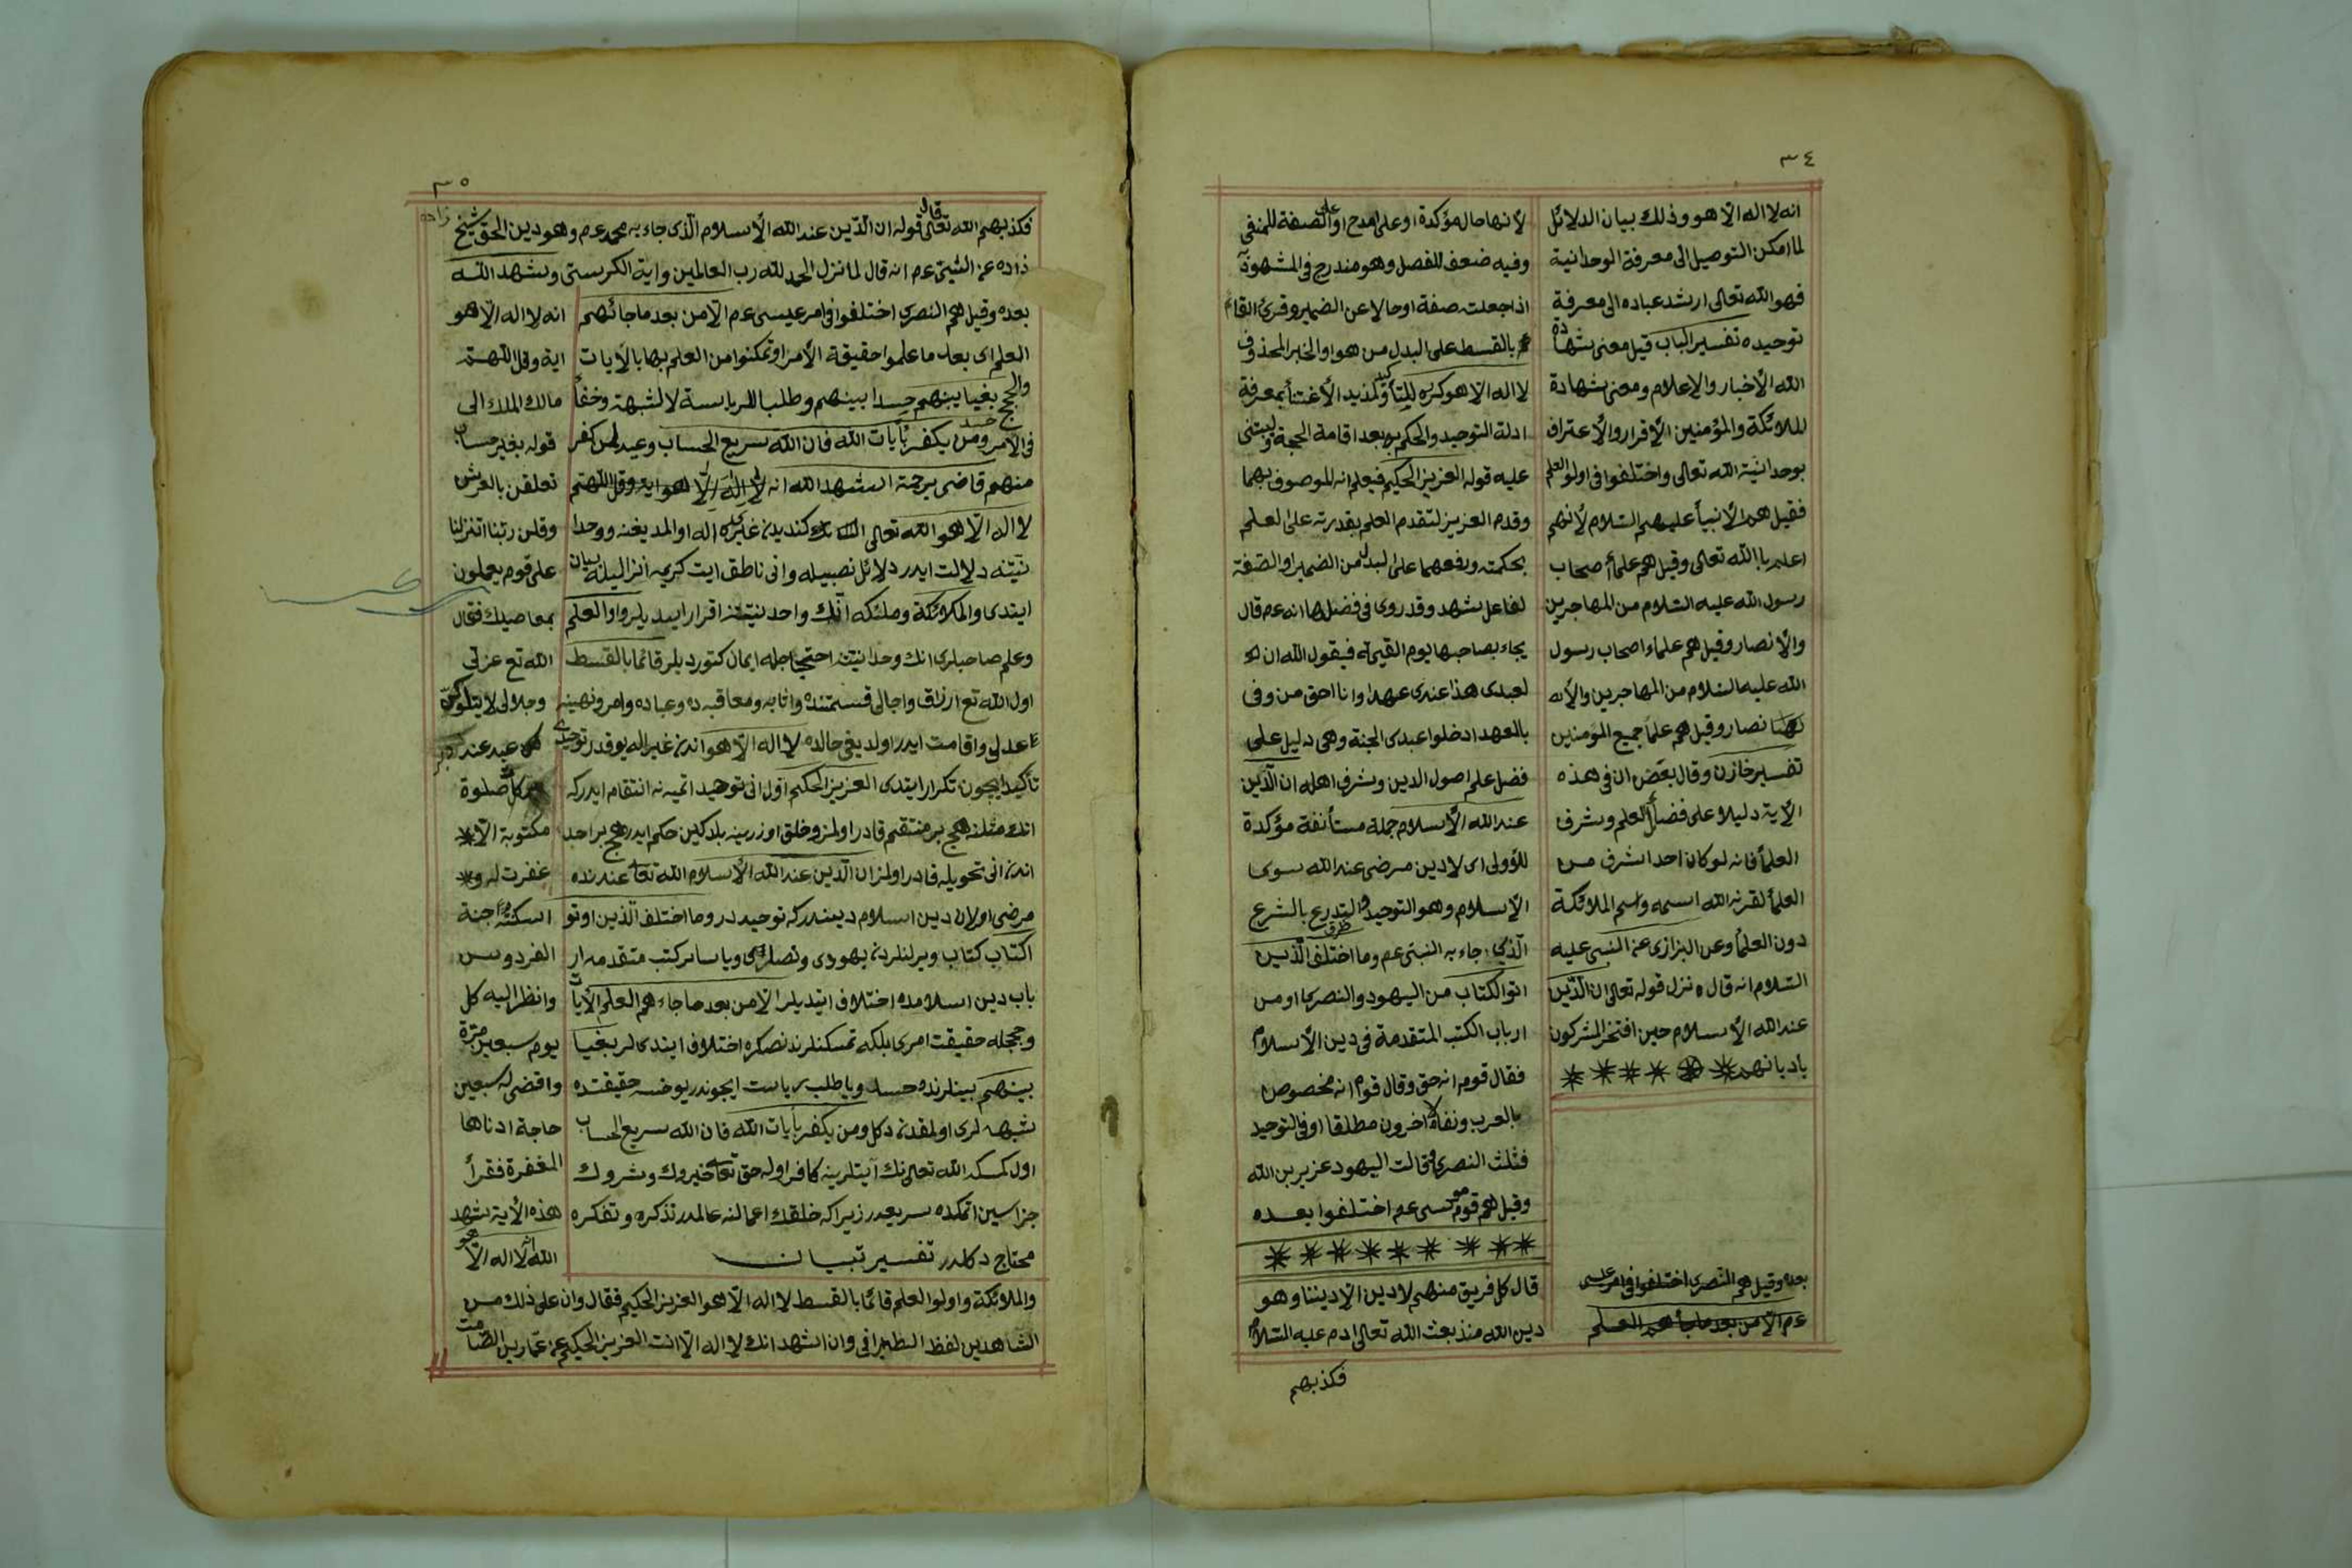 ٣٤
انه لا اله الا هو وذلك ببيان الدلائل
لما امكن التوصيل الى معرفة الوحدانية
فهو الله تعالى ارشد عباده الى معرفة
توحيده تفسير الباب قيل معنى شهادة
الله الأخبار والإعلام ومعنى شهادة
للملائكة والمؤمنين الإقرار والإعتراف
بوحدانية الله تعالى واختلفوا فى اولوا العلم
فقيل هم الأنبيأ عليهم السلام لأنهم
اعلم باالله تعالى وقيل هم علمأ أصحاب
رسول الله عليه السلام من المهاجرين
والأنصار وقيل هم علماء اصحاب رسول
الله عليه السلام من المهاجرين والأنه
نصار وقيل هم علمأ جميع المؤمنين
تفسير خازن وقال بعض ان فى هذه
الأية دليلا على فضل العلم وشرف
العلمأ فانه لو كان احد اشرف من
العلمأ لقرنه الله اسمه واسم الملائكة
دون العلمأ وعن البزازى عن النبى عليه
السلام انه قال نزل قوله تعالى ان الدين
عند الله الأسلام حين افتخر المشركون
بادیانهم
بعده وقيل هم النصرى اختلفوا فى امر عيسى
عم الا من بعد ما جأهم العلم
لأنها حال مؤكدة او على المدح او على الصفة للمنفى
وفيه ضعف للفصل وهو مندرج فى المشهود به
اذا جعلت صفة او حالا عن الضمير وقرئ القائم
بالقسط على البدل من هو او الخبر المحذوف
لا اله الا هو كرره للتأكيد ولمذيد الأعتنأ بمعرفة
ادلة التوحيد والحكم به بعد اقامة الحجة وليبتنى
عليه قوله العزيز الحكيم فيعلم انه الموصوف بهما
وقدم العزيز لتقدم العلم بقدرته على العلم
بحكمته ورفعهما على البدل من الضمير او الصفة
لفاعل شهد وقد روى فى فضلها انه عم قال
يجاء بصاحبها يوم القيمة فيقول الله ان
لعبدى هذا عندى عهدا وانا احق من وفى
بالعهد ادخلوا عبدى الجنة وهى دليل على
فضل علم اصول الدين وشرف اهله ان الدين
عند الله الأسلام جملة مستأنفة مؤكدة
للأولى اى لا دين مرضى عند الله سوى
الإسلام وهو التوحيد والتدرع بالشرع
الذى جاء به النبى عم وما اختلف الذين
اتوا الكتاب من اليهود والنصرى او من
ارباب الكتب المتقدمة فى دين الأسلام
فقال قوم انه حق وقال قوم انه مخصوص
بالعرب ونفاه آخرون مطلقا او فى التوحيد
فثلث النصرى وقالت اليهود عزير بن الله
وقيل هم قوم موسى عم اختلفوا بعده
قال كل فريق منهم لا دين الا ديننا وهو
دين الله منذ بعث الله تعالى ادم عليه السلام
فكذبهم
٣٥
فكذبهم الله تعالى قال قوله ان الدين عند الله الأسلام الذى جاء به محمد عم وهو دين الحق شيخ زاده
زاده عن النبى عم انه قال لما نزل الحمد لله رب العالمين واية الكرسى وشهد الله
بعده وقيل هم النصرى اختلفوا فى امر عيسى عم الا من بعد ما جائهم
العلم اى بعد ما علموا حقيقة الأمر او تمكنوا من العلم بها بالأيات
والحجج بغيا بينهم حسدا بينهم وطلبا للرياسة لا لشبهة وخفأ
فى الأمر ومن يكفر بأيات الله فان الله سريع الحساب وعيد لمن كفر
منهم قاضى ترجمة شهد الله انه لا اله الا هو
لا اله الا هو الله تعالى غيرى اله اولمديغنه ووحدا
نيتنه دلالت ايدر دلائل نصبيله وانى ناطق ايت كريمه انزاليله بيان
ايتدى والملائكة وملئكه آنك واحدنيتنه اقرار ايتديلر واولوا العلم
وعلم صاحبلرى انك وحدانيتنه احتجاجله ايمان كتورديلر قائما بالقسط
اول الله تع ارزاق واجالى قسمتنده واثابه ومعاقبه ده وعباده وامر ونهينه
عدلى واقامت ايدر اولديغى حالده لا اله الا هو اندن غير اله يوقدر توحيدى
تأكيد ايچون تكرار ايتدى العزيز الحكيم اول انى توحيد اتميه نه انتقام ايدركه
انك مثلنه هيچ بر منتقم قادر اولمز وخلق اوزرينه ديلدكين حكم ايدر هيچ بر احد
اندن انى تحويله قادر اولمز ان الدين عند الله الأسلام الله تعالى عندنده
مرضى اولان دين اسلام دينيدركه توحيددر وما اختلف الذين اوتو
الكتاب كتاب ويرلنلردن يهودى ونصارى ويا سائر كتب متقدمه ار
باب دين اسلامده اختلاف ايتديلر الا من بعد ما جاءهم العلم الأيات
وحججله حقيقت امرى بلمكه تمكنلرندنصكره اختلاف ايتديلر بغيا
بينهم بينلرنده حسد ويا طلب رياست ايچوندر يوخسه حقيقتده
شبهه لرى اولمقدن دكل ومن يكفر بأيات الله فان الله سريع الحساب
اول كمسكه الله تعالى نك آيتلرينه كافر اوله حق تعالى خيروك وشروك
جزاسين اتمكده سريعدر زيراكه خلقك اعمالنه عالمدر تذكره وتفكره
محتاج دكلدر تفسير تبيان
انه لا اله الا هو
اية وقل اللهم
مالك الملك الى
قوله بغير حساب
تعلقن بالعرش
وقلن ربنا اتنزلنا
على قوم يعملون
بمعاصيك فقال
الله تع عزتى
وجلالى لا يتلوكن
عبد عند دبر
كل صلوة
مكتوبة الا
غفرت له و
اسكنته جنة
الفردوس
وانظر اليه كل
يوم سبعين مرة
واقضى له سبعين
حاجة ادناها
المغفرة فقرأ
هذه الأية شهد
الله انه لا اله الا هو
والملائكة واولوا العلم قائما بالقسط لا اله الا هو العزيز الحكيم فقال وان على ذلك من
الشاهدين لفظ الطبرانى وان اشهد انك لا اله الا انت العزيز الحكيم عن